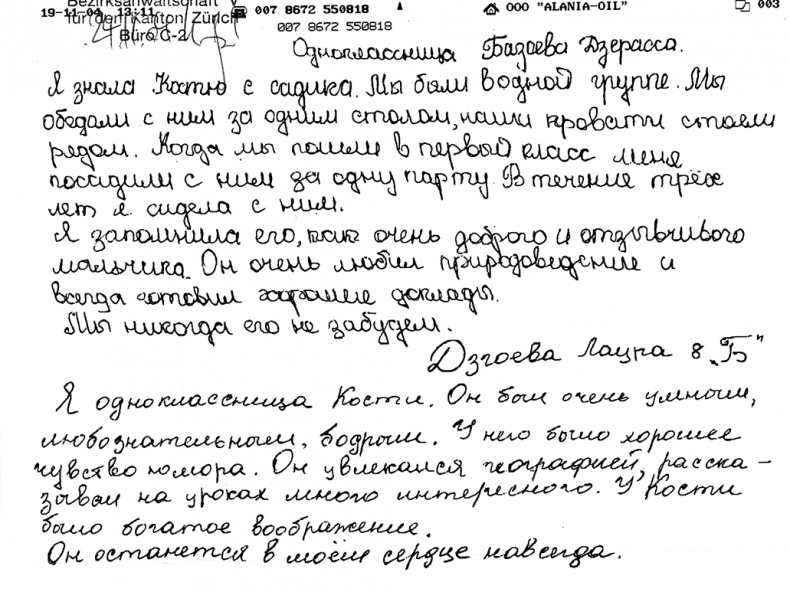 Bezirksanwaltschaft V
19-11-04 13:11 007 8672 550818 ООО "ALANIA-OIL" 003
für den Kanton Zürich
007 8672 550818
Büro C-2
Одноклассница Базаева Дзерасса.
Я знала Костю с садика. Мы были в одной группе. Мы
обедали с ним за одним столом, наши кровати стояли
рядом. Когда мы пошли в первый класс меня
посадили с ним за одну парту. В течение трёх
лет я сидела с ним.
Я запомнила его, как очень доброго и отзывчивого
мальчика. Он очень любил природоведение и
всегда готовил хорошие доклады.
Мы никогда его не забудем.
Дзгоева Лаура 8 „Б"
Я одноклассница Кости. Он был очень умным,
любознательным, бодрым. У него было хорошее
чувство юмора. Он увлекался географией, расска-
зывал на уроках много интересного. У Кости
было богатое воображение.
Он останется в моём сердце навсегда.